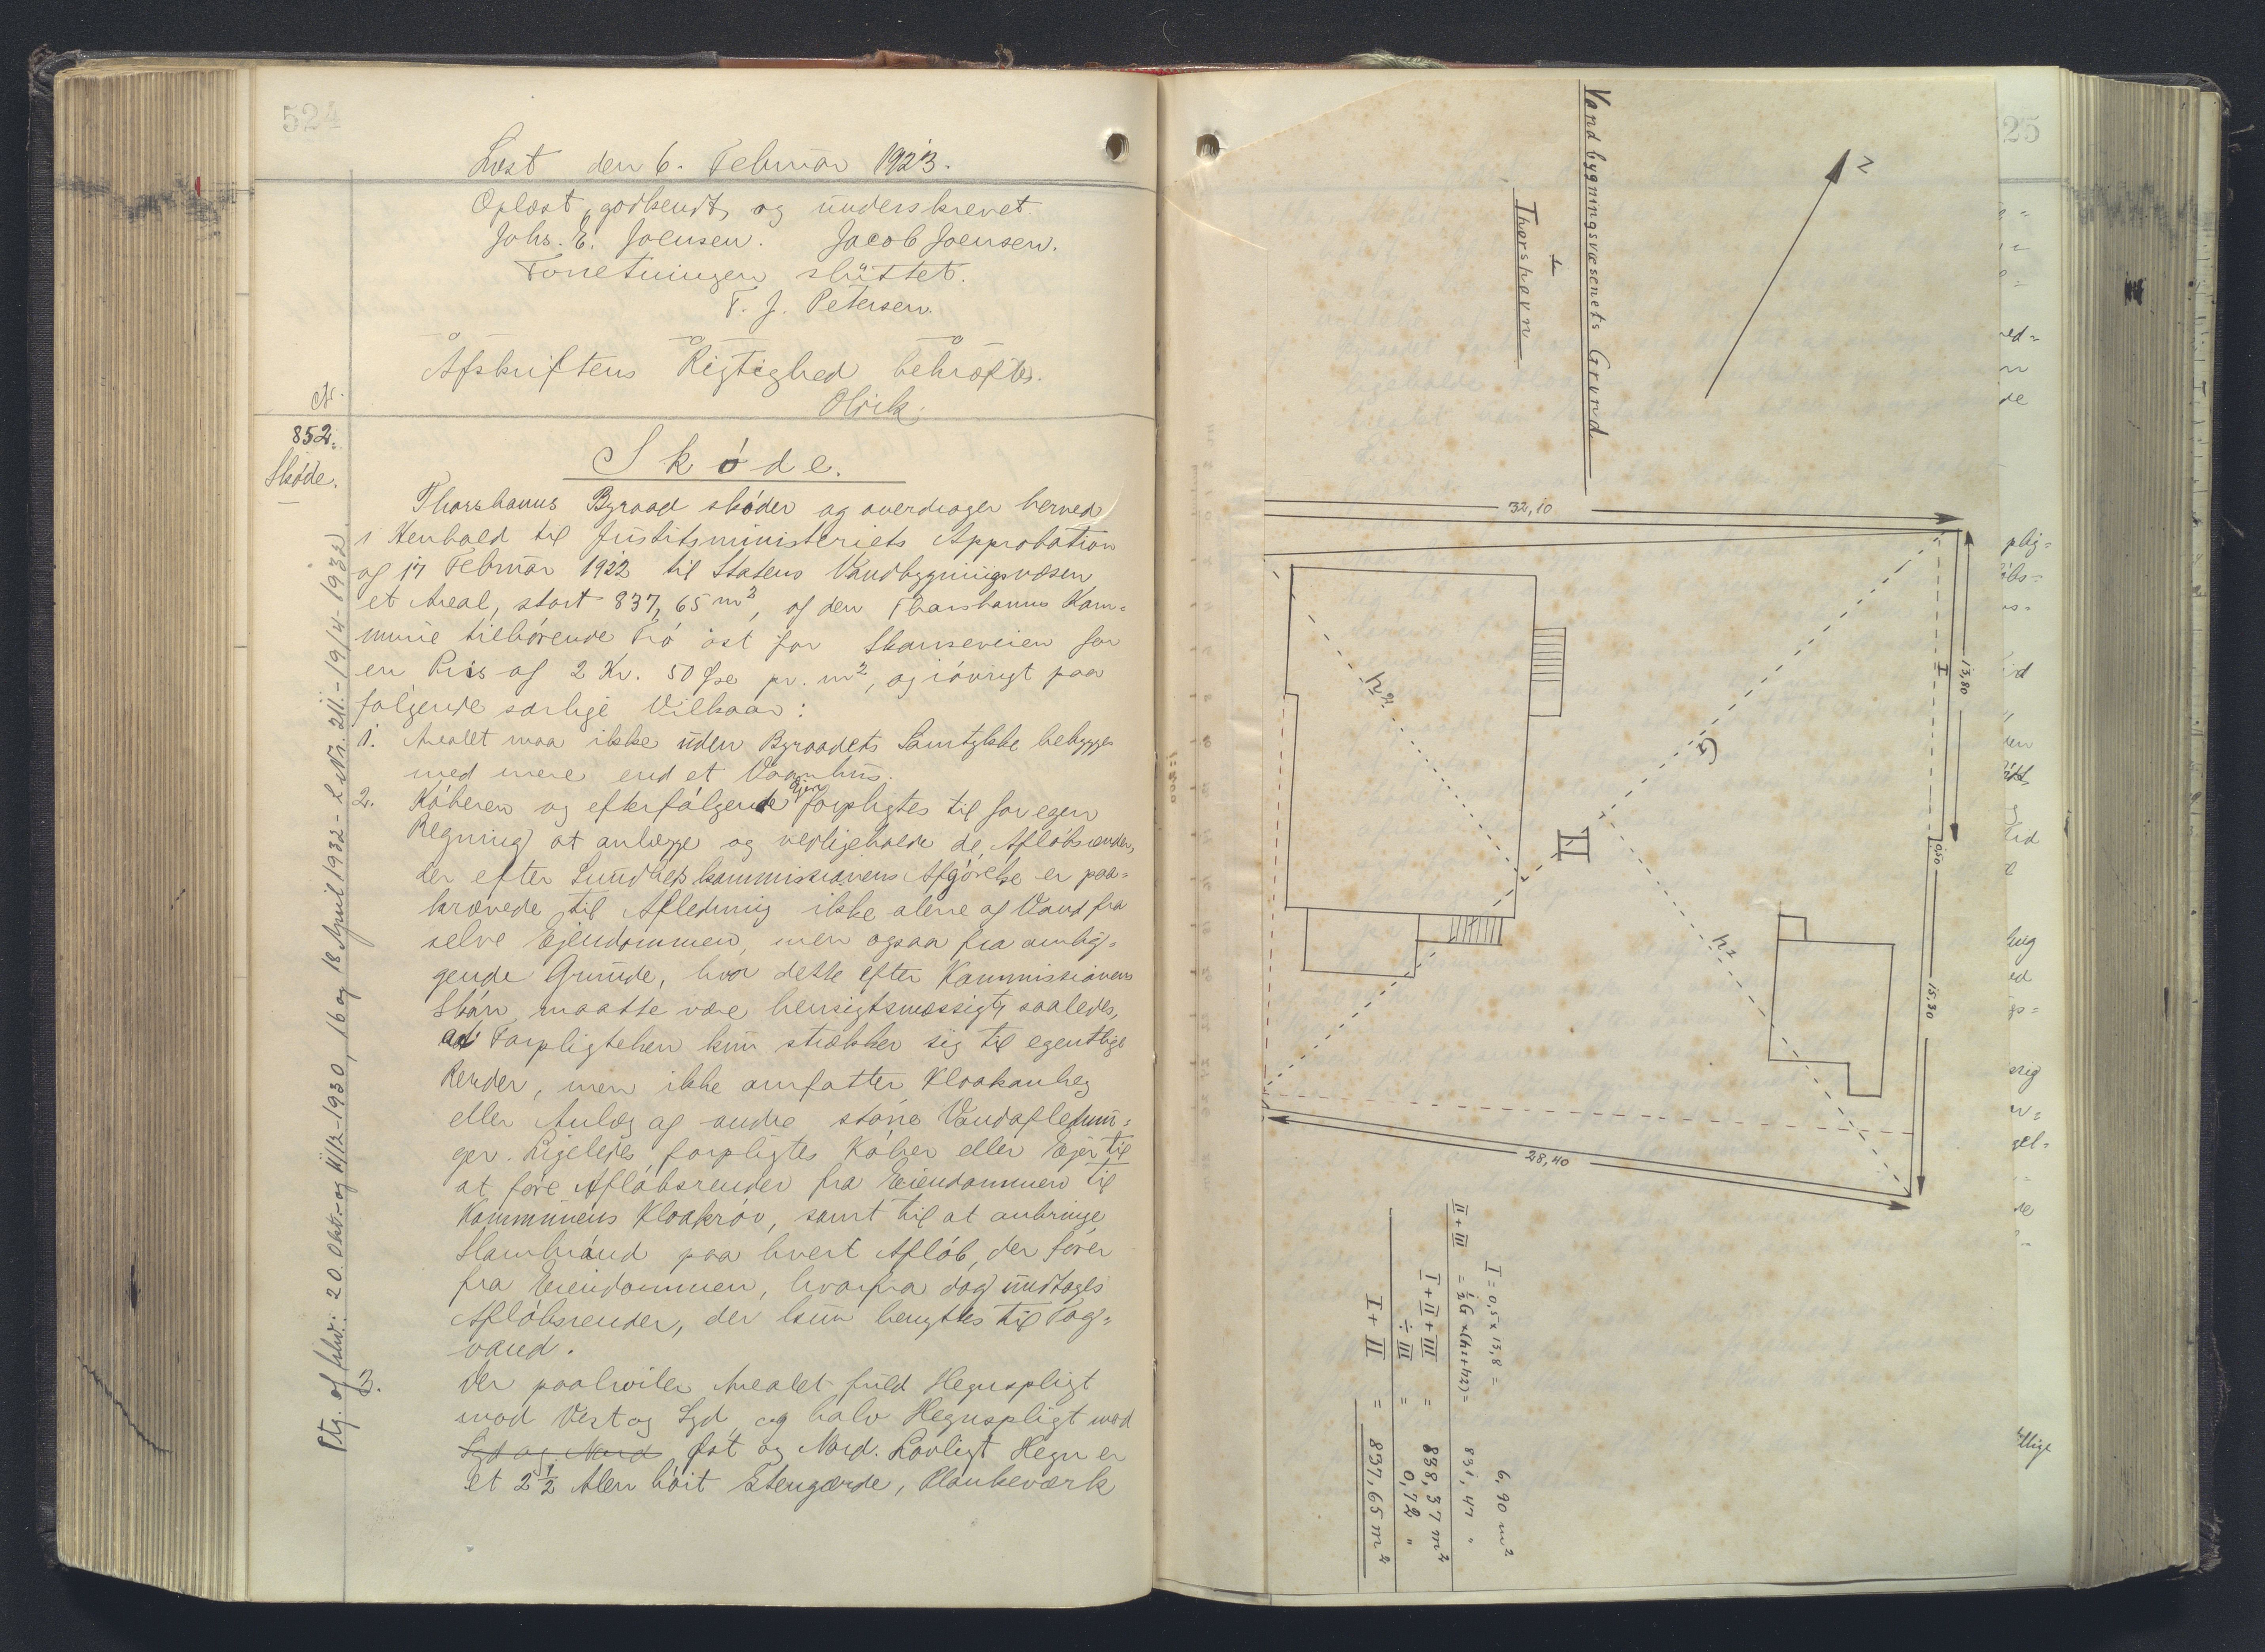 524
Læst den 6. Februar 1923.
Oplæst, godkendt, og underskrevet.
Johs. E. Joensen. Jacob Joensen.
Forretningen sluttet.
T. J. Petersen.
Afskriftens Rigtighed bekræftes.
Nr.
852.
Skøde.
Skøde.
Thorshavns Byraad skøder og overdrager herved
i Henhold til Justitsministeriets Approbation
af 17 Februar 1922 til Statens Vandbygningsvæsen
et Areal, stort 837,65 m², af den Thorshavns Kom=
mune tilhørende Trø øst for Skanseveien for
en Pris af 2 Kr. 50 Øre pr. m², og iøvrigt paa
følgende særlige Vilkaar:
1. Arealet maa ikke uden Byraadets Samtykke bebygges
med mere end et Vaanhus.
2. Køberen og efterfølgende Ejere forpligtes til for egen
Regning at anlægge og vedligeholde de Afløbsrender,
der efter Sundhedskommissionens Afgørelse er paa=
krævede til Afledning ikke alene af Vand fra
selve Ejendommen, men ogsaa fra omlig=
gende Grunde, hvor dette efter Kommissionens
Skøn maatte være hensigtsmæssigt, saaledes,
at Forpligtelsen kun strækker sig til egentlige
Render, men ikke omfatter Kloakanlæg
eller Anlæg af andre større Vandaflednin=
ger. Ligeledes forpligtes Køber eller Ejer til
at føre Afløbsrender fra Eiendommen til
Kommunens Kloakrør, samt til at anbringe
Slambrønd paa hvert Afløb, der fører
fra Eiendommen, hvorfra dog undtages
Afløbsrender, der kun benyttes til Tag=
vand.
3. Der paahviler Arealet fuld Hegnspligt
mod Vest og Syd og halv Hegnspligt mod
Syd og Nord Øst og Nord. Lovligt Hegn er
et 2 ½ Alen høit Stengærde, Plankeværk
Ftg. af Indv.: 20. Okt.- og 11/12-1930, 16 og 18 April 1932 - L. Nr. 211.-19/4-1932
25
Vandbygningsvæsenets Grund
i
Thorshavn
N
32,10
13,80
I
0,50
15,30
28,40
h2
G
II
h1
1:200
I = 0,5 x 13,8 = 6,90 m²
II + III = ½ G x (h1 + h2) = 831,47 "
I + II + III = 838,37 m²
÷ III = 0,72 "
I + II = 837,65 m²